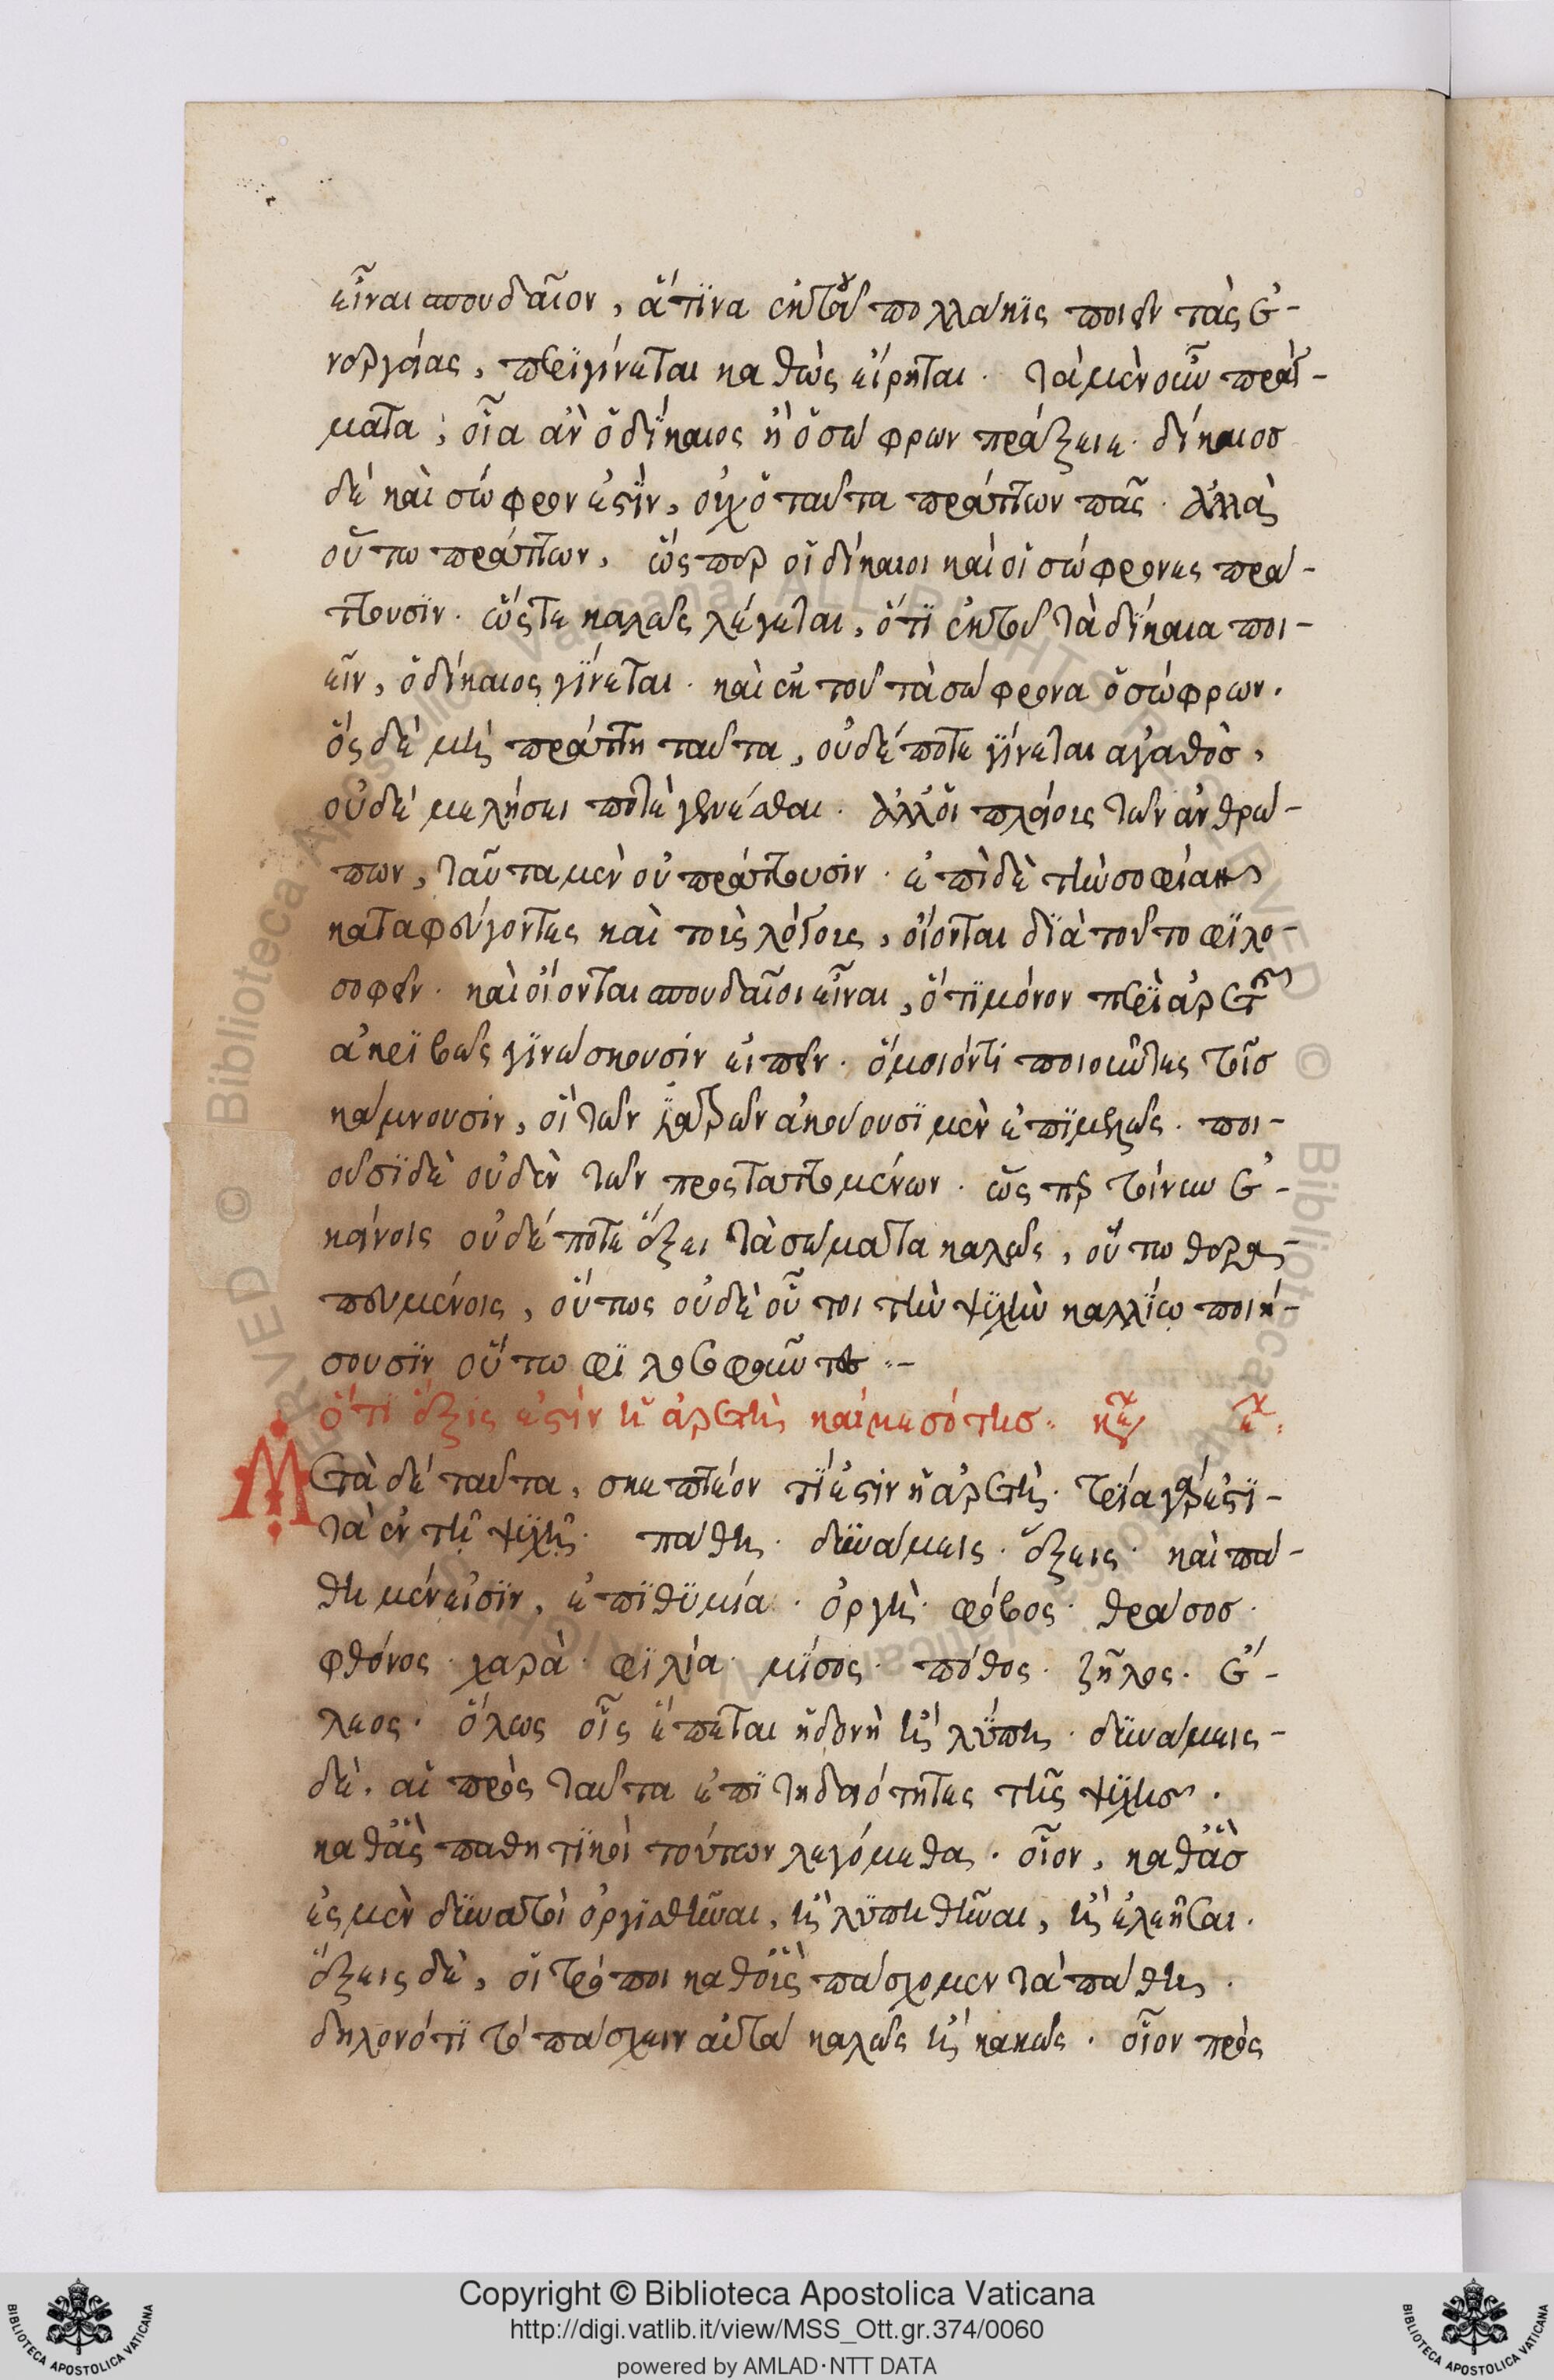 εἶναι σπουδαῖον, ἅτινα ἐκ τοῦ πολλάκις ποιεῖν τὰς ἐ-
νεργείας, περιγίνεται καθὼς εἴρηται. τὰ μὲν οὖν πράγ-
ματα, οἷα ἂν ὁ δίκαιος ἢ ὁ σώφρων πράξειε. δίκαιος
δὲ καὶ σώφρον ἐστὶν, οὐχ ὁ ταῦτα πράττων πᾶς. ἀλλὰ
οὕτω πράττων, ὥςπερ οἱ δίκαιοι καὶ οἱ σώφρονες πρά-
ττουσιν. ὥςτε καλῶς λέγεται, ὅτι ἐκ τοῦ τὰ δίκαια ποι-
εῖν, ὁ δίκαιος γίνεται. καὶ ἐκ τοῦ τὰ σώφρονα ὁ σώφρων.
ὃς δὲ μὴ πράττη ταῦτα, οὐδέποτε γίνεται αγαθὸσ,
οὐδὲ μελήσει ποτὲ γενέσθαι. ἀλλ' οἱ πλείοις τῶν ἀνθρώ-
πων, ταῦτα μὲν οὐ πράττουσιν. ἐπὶ δὲ τὴν σοφίαν
καταφεύγοντες καὶ τοῖς λόγοις, οἴονται διὰ τοῦτο φιλο-
σοφεῖν. καὶ οἴονται σπουδαῖοι εἶναι, ὅτι μόνον περὶ ἀρετῆς
ἀκριβῶς γινώσκουσιν εἰπεῖν. ὅμοιόν τι ποιοῦντες τοῖσ
κάμνουσιν, οἳ τῶν ἰατρῶν ἀκούουσι μὲν ἐπιμελῶς. ποι-
οῦσι δὲ οὐδὲν τῶν προςταττομένων. ὥςπερ τοίνυν ἐ-
κείνοις οὐδέποτε ἕξει τὰ σώματα καλῶς, οὕτω θερα-
πευμένοις, οὕτως οὐδὲ οὗτοι τὴν ψυχὴν καλλίω ποιή-
σουσιν οὕτω φιλοσοφοῦντες ..-
ὅτι ἕξις ἐστὶν ἡ ἀρετὴ καὶ μεσότησ. κεφ ε.
Μετὰ δὲ ταῦτα, σκεπτέον τί ἐστιν ἡ ἀρετὴ. τρία γάρ ἐστι
τὰ ἐν τῇ ψυχῇ. πάθη. δυνάμεις. ἕξεις. καὶ πά-
θη μέν εἰσιν, ἐπιθυμία. ὀργὴ. φόβος. θράσοσ.
φθόνος. χαρὰ. φιλία. μίσος. πόθος. ζῆλος. ἔ-
λεος. ὅλως οἷς ἕπεται ἡδονὴ ἢ λύπη. δυνάμεις-
δὲ. αἱ πρὸς ταῦτα ἐπιτηδειότητες τῆς ψυχῆσ.
καθ' ἃς παθητικοὶ τούτων λεγόμεθα. οἷον, καθ' ἃσ
ἐςμὲν δυνατοὶ ὀργισθῆναι, ἢ λυπηθῆναι, ἢ ἐλεῆσαι.
ἕξεις δὲ, οἱ τρόποι καθ' οἳς πάσχομεν τὰ πάθη.
δηλονότι τὸ πάσχειν αὐτὰ καλῶς ἢ κακῶς. οἷον πρὸς
Copyright © Biblioteca Apostolica Vaticana
http://digi.vatlib.it/view/MSS_Ott.gr.374/0060
powered by AMLAD·NTT DATA